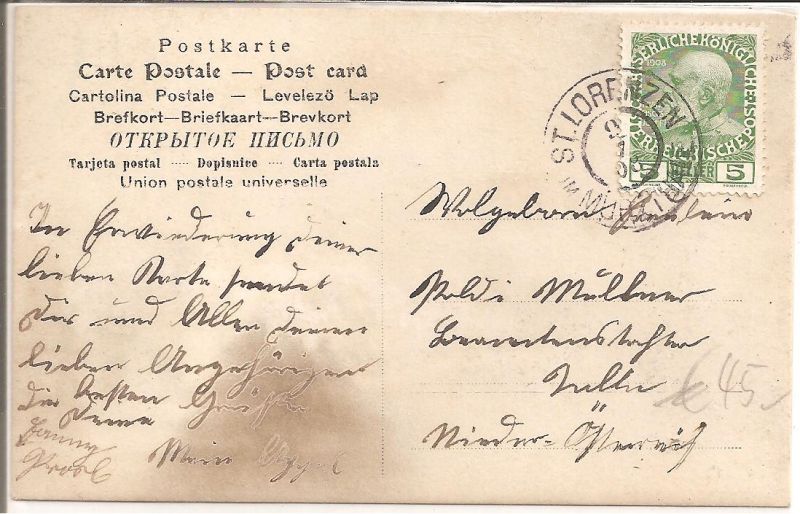 Postkarte
Carte Postale — Post card
Cartolina Postale — Levelező Lap
Brefkort—Briefkaart—Brevkort
ОТКРЫТОЕ ПИСЬМО
Tarjeta postal ···· Dopisnice ···· Carta postala
Union postale universelle
KAISERLICHE KÖNIGLICHE
1908
ÖSTERREICHISCHE POST
5 HELLER 5
ST. LORENZEN
IM MÜRZTAL
In Erwiederung deiner
lieben Karte sendet
Dir und Allen deinen
lieben Angehörigen
die besten Grüße
Deine
Wolgeboren Fräulein
Poldi Müllner
Beamtenstochter
Tulln
Nieder-Österreich
45